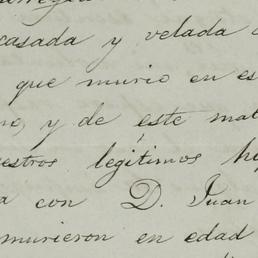 casada y velada
que murio en es
y de este mat
estros legitimos hi
con D. Juan
murieron en edad